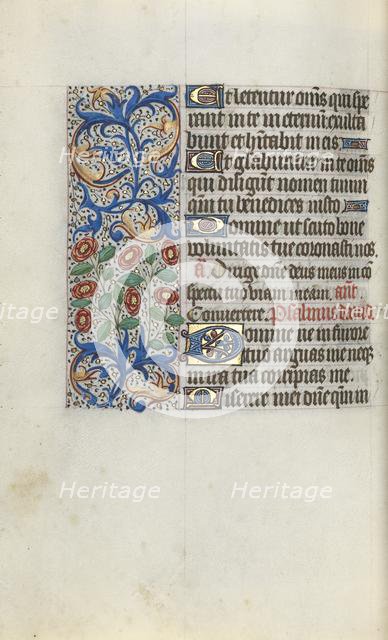 Et letentur om̄s qui spe
rant in te in eternū exulta
bunt et hītabis in eis
Et glabuntur in te om̄s
qui diligūt nomen tuum
qm̄ tu benedices iusto
Domine ut scuto bone
uoluntatis tue coronasti nos.
a. Dirige dn̄e deus meus in co
spectu tuo uiam meam. ant
Conuertere. Psalmus
Domine ne in furore
tuo arguas me neqz
in ira tua corripias me.
Miserere mei dn̄e qm̄ in
Heritage Heritage
Heritage Heritage
Heritage Heritage